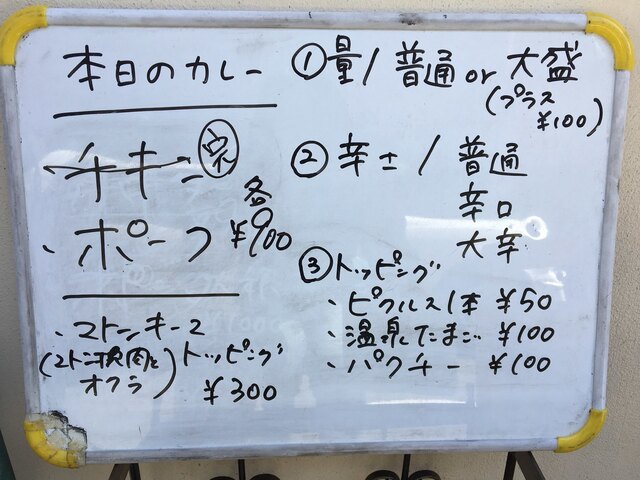 本日のカレー
チキン 完
・ポーク 各¥900
・マトンキーマ
(マトン挽肉と オクラ) トッピング
¥300
①量/普通 or 大盛
(プラス ¥100)
②辛さ/普通
辛口
大辛
③トッピング
・ピクルス1本 ¥50
・温泉たまご ¥100
・パクチー ¥100